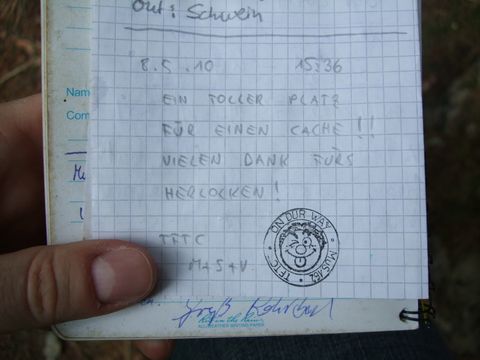 Out: Schwein
8.5.10 15:36
EIN TOLLER PLATZ
FÜR EINEN CACHE!!
VIELEN DANK FÜRS
HERLOCKEN!
TFTC
M+S+V.
ON OUR WAY · MUS152 · TFTC ·
Name
Com
Rite in the Rain
ALL-WEATHER WRITING PAPER